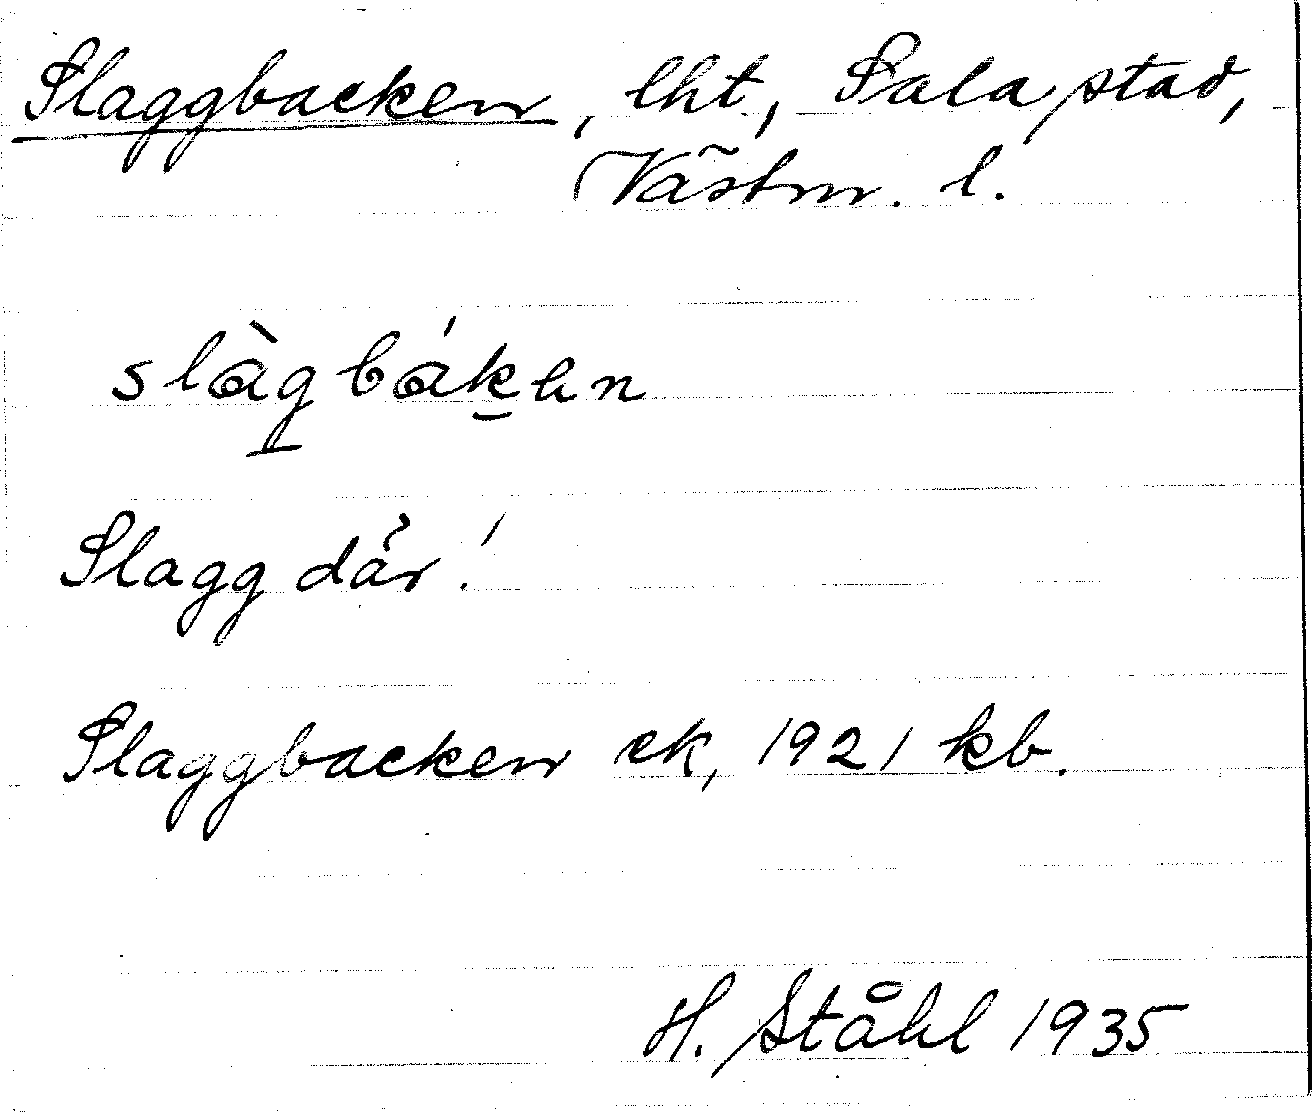 Slaggbacken, lht, Sala stad,
Västm. l.
slàgbákən
Slagg där!
Slaggbacken ek, 1921 kb.
H. Ståhl 1935